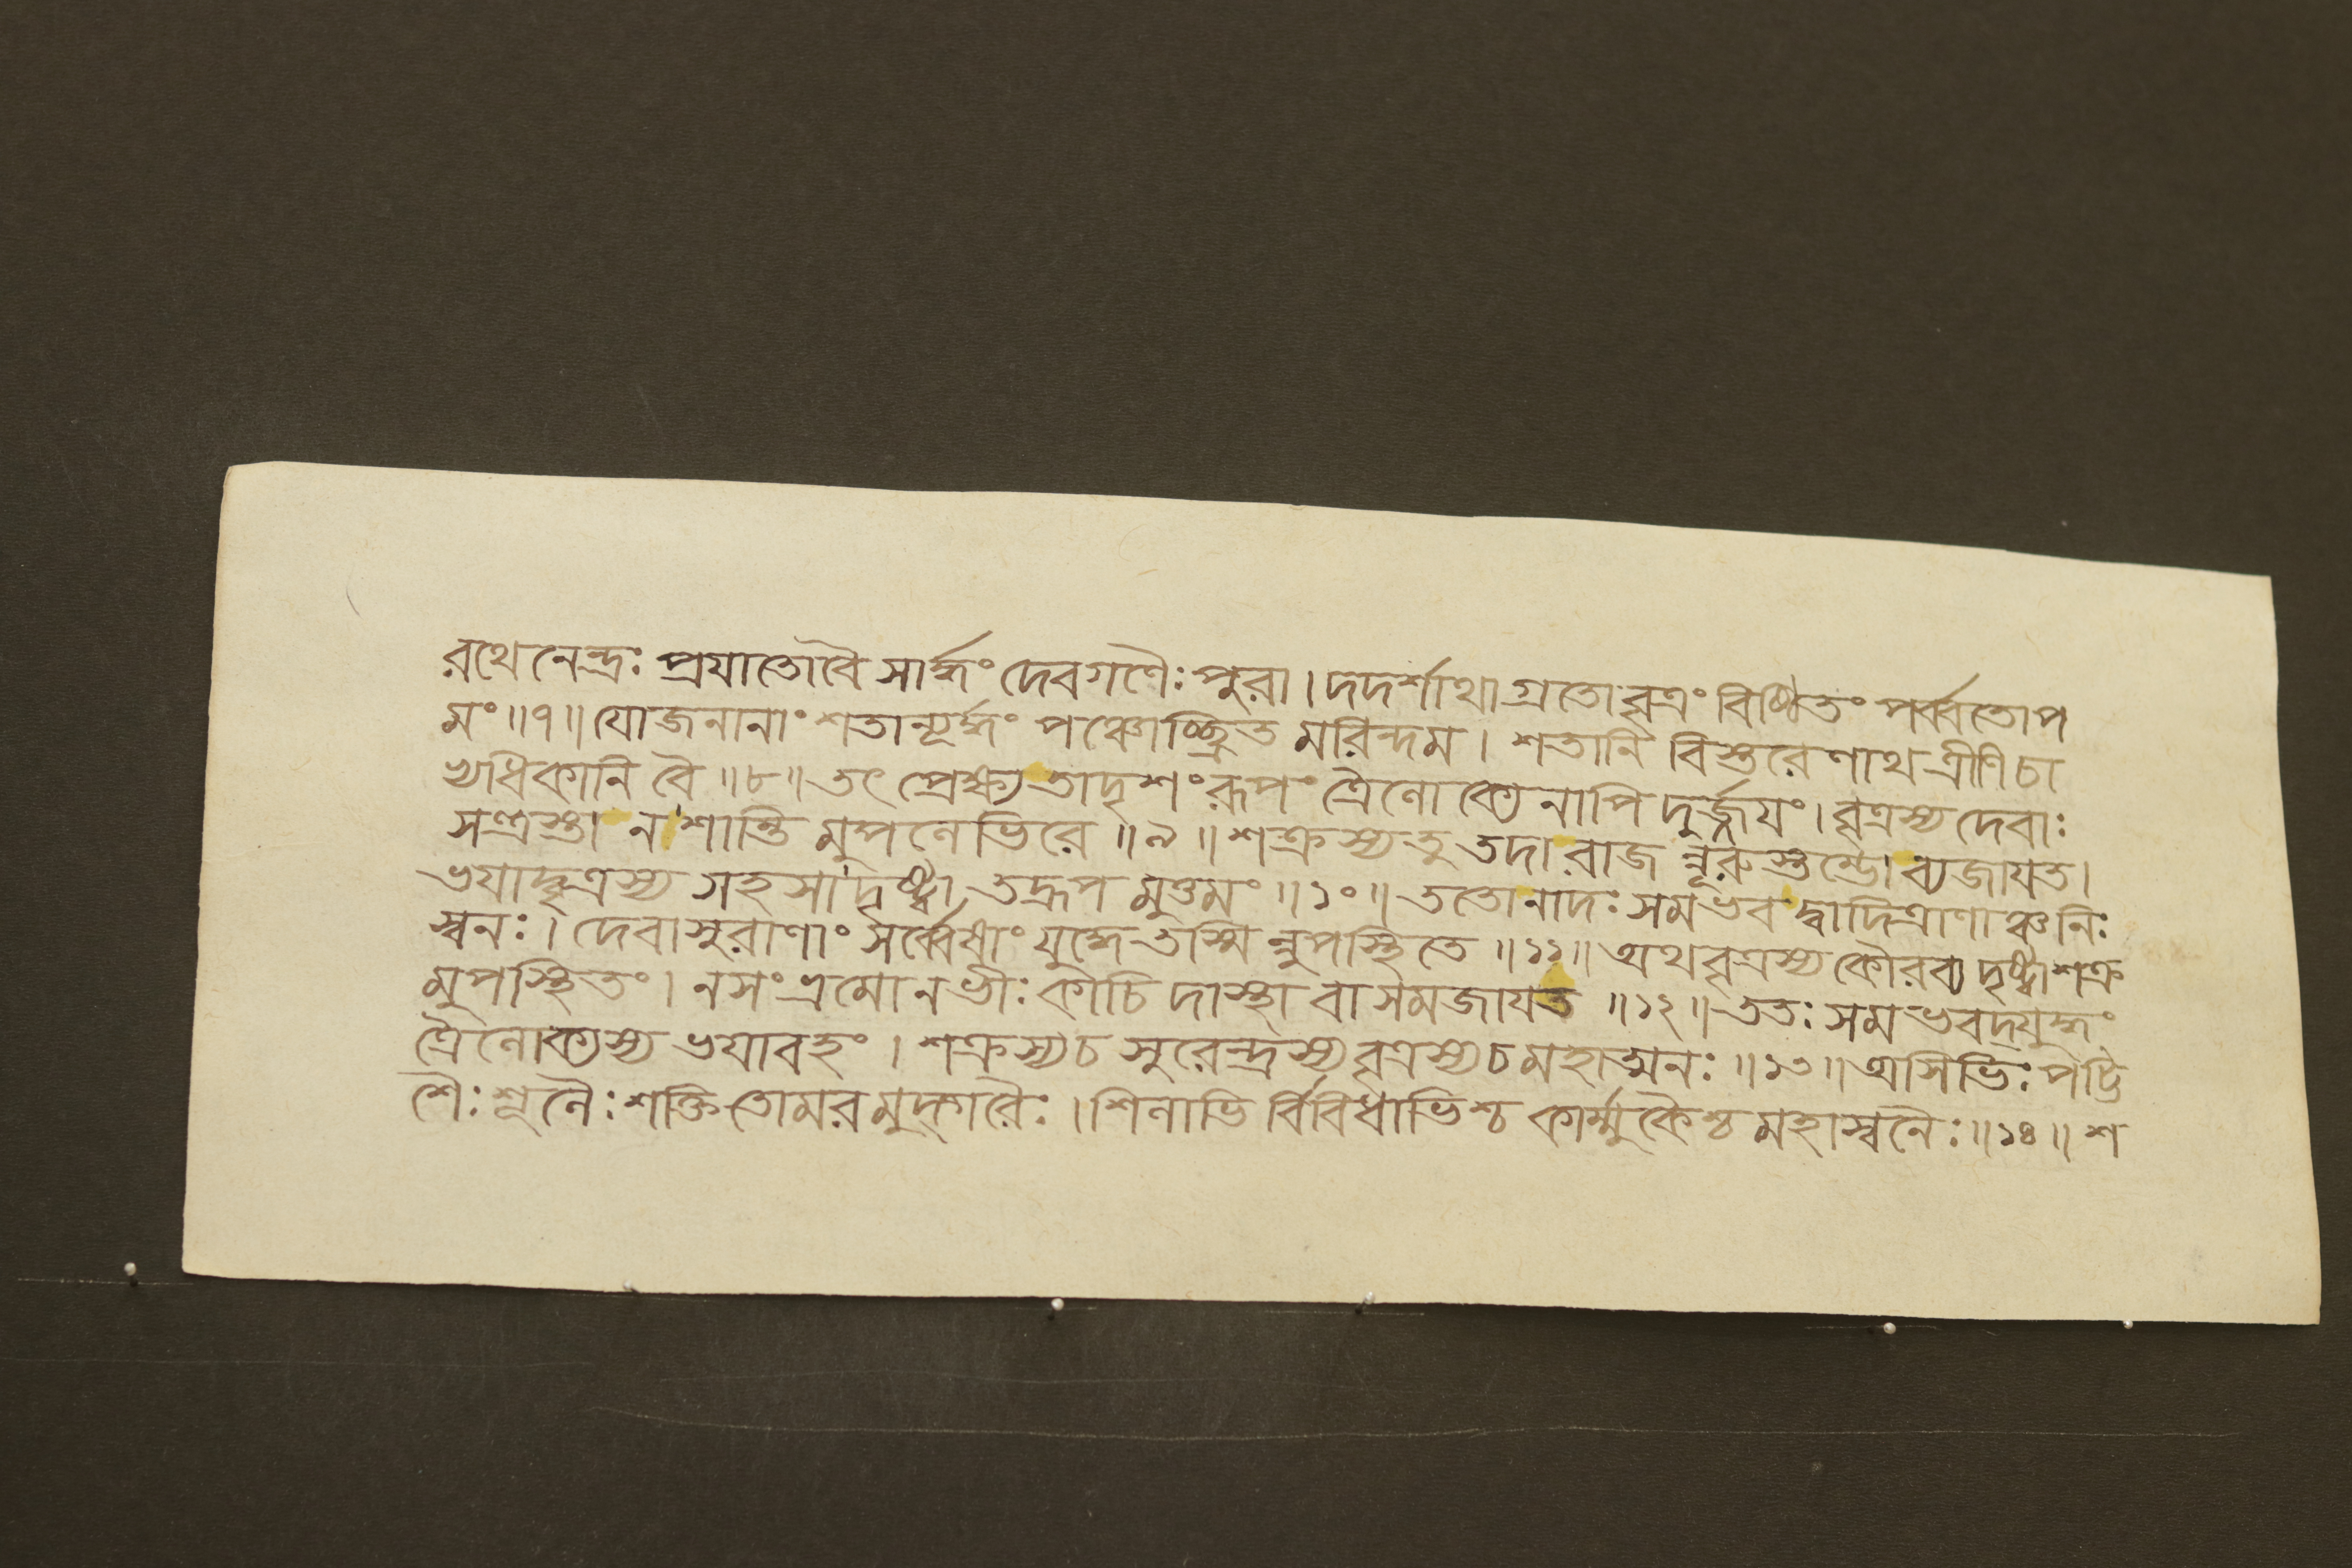 রথেনেন্দ্রঃ প্রযাতোবৈ সার্দ্ধং দেবগণৈঃ পুরা। দদর্শাথাগ্রতোবৃত্রং বিষ্ঠিতং পর্ব্বতোপ
মং॥৭॥ যোজনানাং শতান্যূর্দ্ধং পঞ্চোচ্ছ্রিত মরিন্দম। শতানি বিস্তরেণাথ ত্রীণিচা
ভ্যধিকানি বৈ॥৮॥ তৎ প্রেক্ষ্য তাদৃশং রূপং ত্রৈলোক্যেনাপি দুর্জ্জযং। বৃত্রস্য দেবাঃ
সন্ত্রস্তা ন শান্তি মুপলেভিরে॥৯॥ শক্রস্য তু তদা রাজ ন্নূরুস্তম্ভো ব্যজাযত।
ভযাদ্বৃত্রস্য সহসা দৃষ্ট্বা তদ্রূপ মুত্তমং॥১০॥ ততোনাদঃ সমভব দ্বাদিত্রাণাঞ্চনিঃ
স্বনঃ। দেবাসুরাণাং সর্ব্বেষাং যুদ্ধে তস্মি ন্নুপস্থিতে॥১১॥ অথবৃত্রস্য কৌরব্য দৃষ্ট্বাশক্র
মুপস্থিতং। নসংভ্রমোনভীঃ কাচি দাস্থা বা সমজাযত॥১২॥ ততঃ সমভবদ্যুদ্ধং
ত্রৈলোক্যস্য ভযাবহং। শক্রস্যচ সুরেন্দ্রস্য বৃত্রস্যচ মহাত্মনঃ॥১৩॥ অসিভিঃ পট্টি
শৈঃ শূলৈঃ শক্তি তোমর মুদ্গরৈঃ। শিলাভি র্বিবিধাভিশ্চ কার্ম্মুকৈশ্চ মহাস্বনৈঃ॥১৪॥ শ